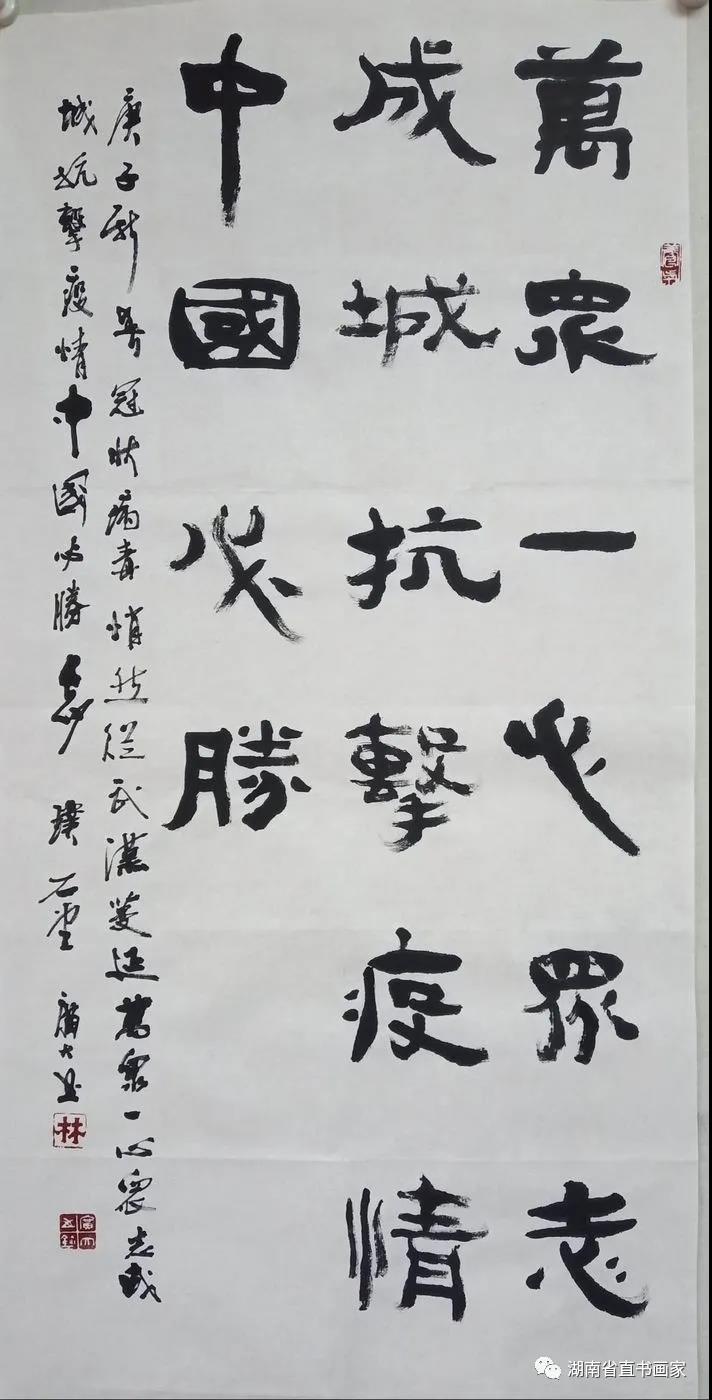 萬眾一心眾志
成城抗擊疫情
中國必勝
庚子新年冠狀病毒悄然從武漢蔓延萬眾一心眾志成
城抗擊疫情中國必勝
璞石堂
林
湖南省直书画家